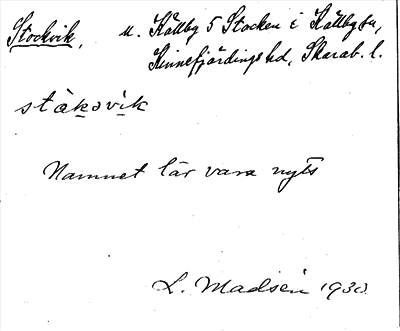 Stockvik, u. Källby 5 Stocken i Källby sn,
Kinnefjärdings hd, Skarab. l.
ståksvik
Namnet lär vara nytt
L. Madsén 1930.